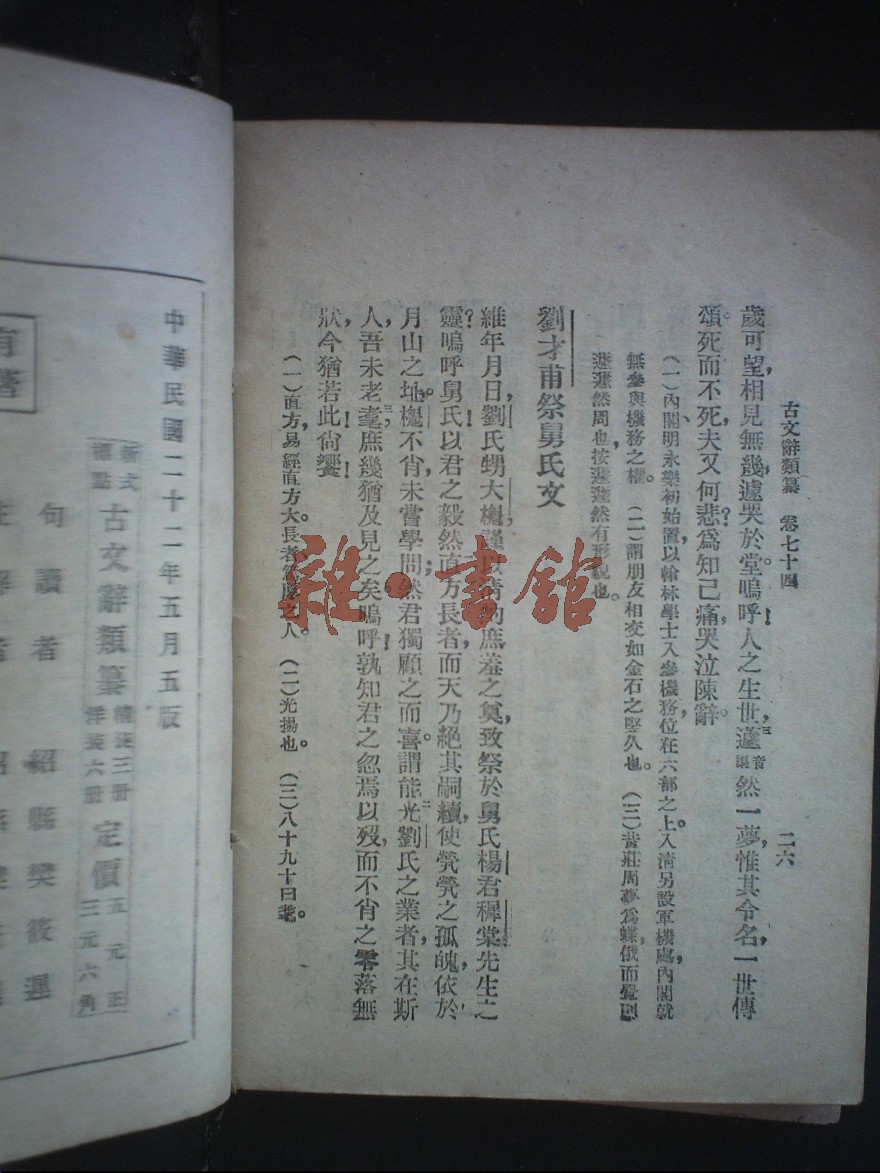 古文辭類纂　卷七十四　二六
歲可望，相見無幾，遽哭於堂。嗚呼！人之生世，蘧音渠然一夢，惟其令名，一世傳
頌。死而不死，夫又何悲？爲知己痛，哭泣陳辭。
（一）內閣，明永樂初始置，以翰林學士入參機務，位在六部之上。入淸另設軍機處，內閣就
無參與機務之權。（二）謂朋友相交如金石之堅久也。（三）昔莊周夢爲蝶，俄而覺，則
蘧蘧然周也。按蘧蘧然有形貌也。
劉才甫祭舅氏文
維年月日，劉氏甥大櫆，謹以淸酌庶羞之奠，致祭於舅氏楊君稺棠先生之
靈：嗚呼舅氏！以君之毅然直方長者，而天乃絕其嗣續，使煢煢之孤魄，依於
月山之址。櫆不肖，未嘗學問；然君獨顧之而喜。謂能光劉氏之業者，其在斯
人，吾未老耄，庶幾猶及見之矣。嗚呼！孰知君之忽焉以歿，而不肖之零落無
狀，今猶若此！尙饗！
（一）直方，易經直方大。長者，然厚之人。（二）光揚也。（三）八十九十曰耄。
雜·書館
中華民國二十二年五月五版
新式標點　古文辭類纂　精裝三册　洋裝六册　定價　五元正　三元六角
句讀者　紹縣樊筱遲